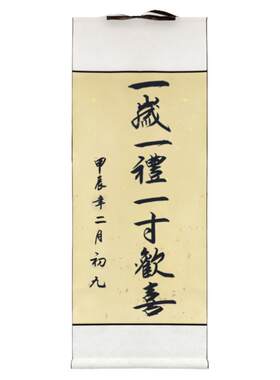 一歲一禮一寸歡喜
甲辰年二月初九